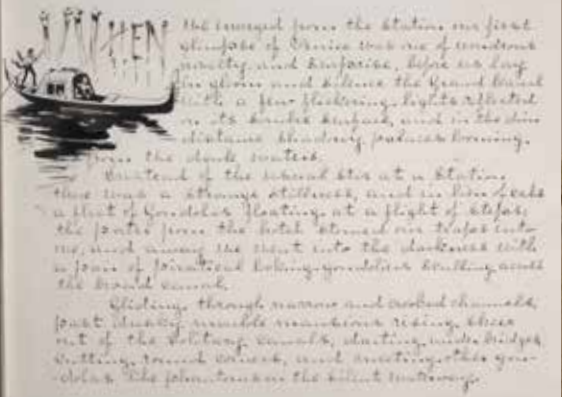 WHEN we emerged from the station our first
glimpse of Venice was one of wondrous
novelty and surprise, before us lay
in gloom and silence the Grand Canal
with a few flickering lights reflected
on its surface, and in the dim
distance shadowy palaces looming
from the dark waters.
Instead of the usual stir at a station
there was a strange stillness, and in lieu of cabs
a fleet of Gondolas floating at a flight of steps,
the porter from the hotel stowed our traps into
one, and away we went into the darkness with
a pair of piratical looking gondoliers sculling across
the broad canal.
Gliding through narrow and crooked channels,
past dusky marble mansions rising sheer
out of the solitary canals, darting under bridges,
cutting round corners, and meeting other gon-
-dolas like phantoms on the silent waterway.